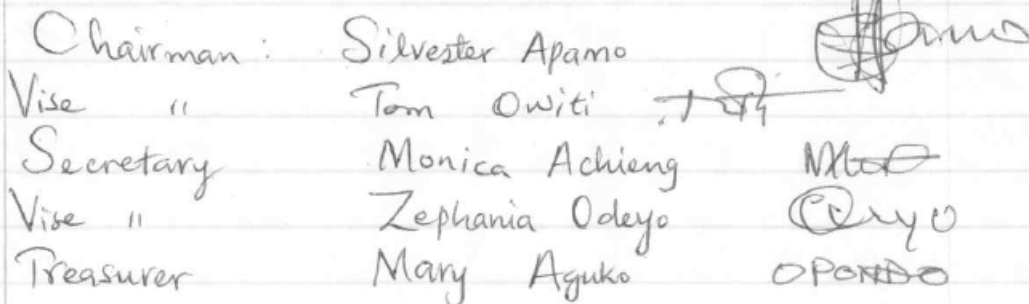 Chairman : Silvester Apamo
Vise " Tom Owiti
Secretary Monica Achieng
Vise " Zephania Odeyo
Treasurer Mary Aguko OPONDO